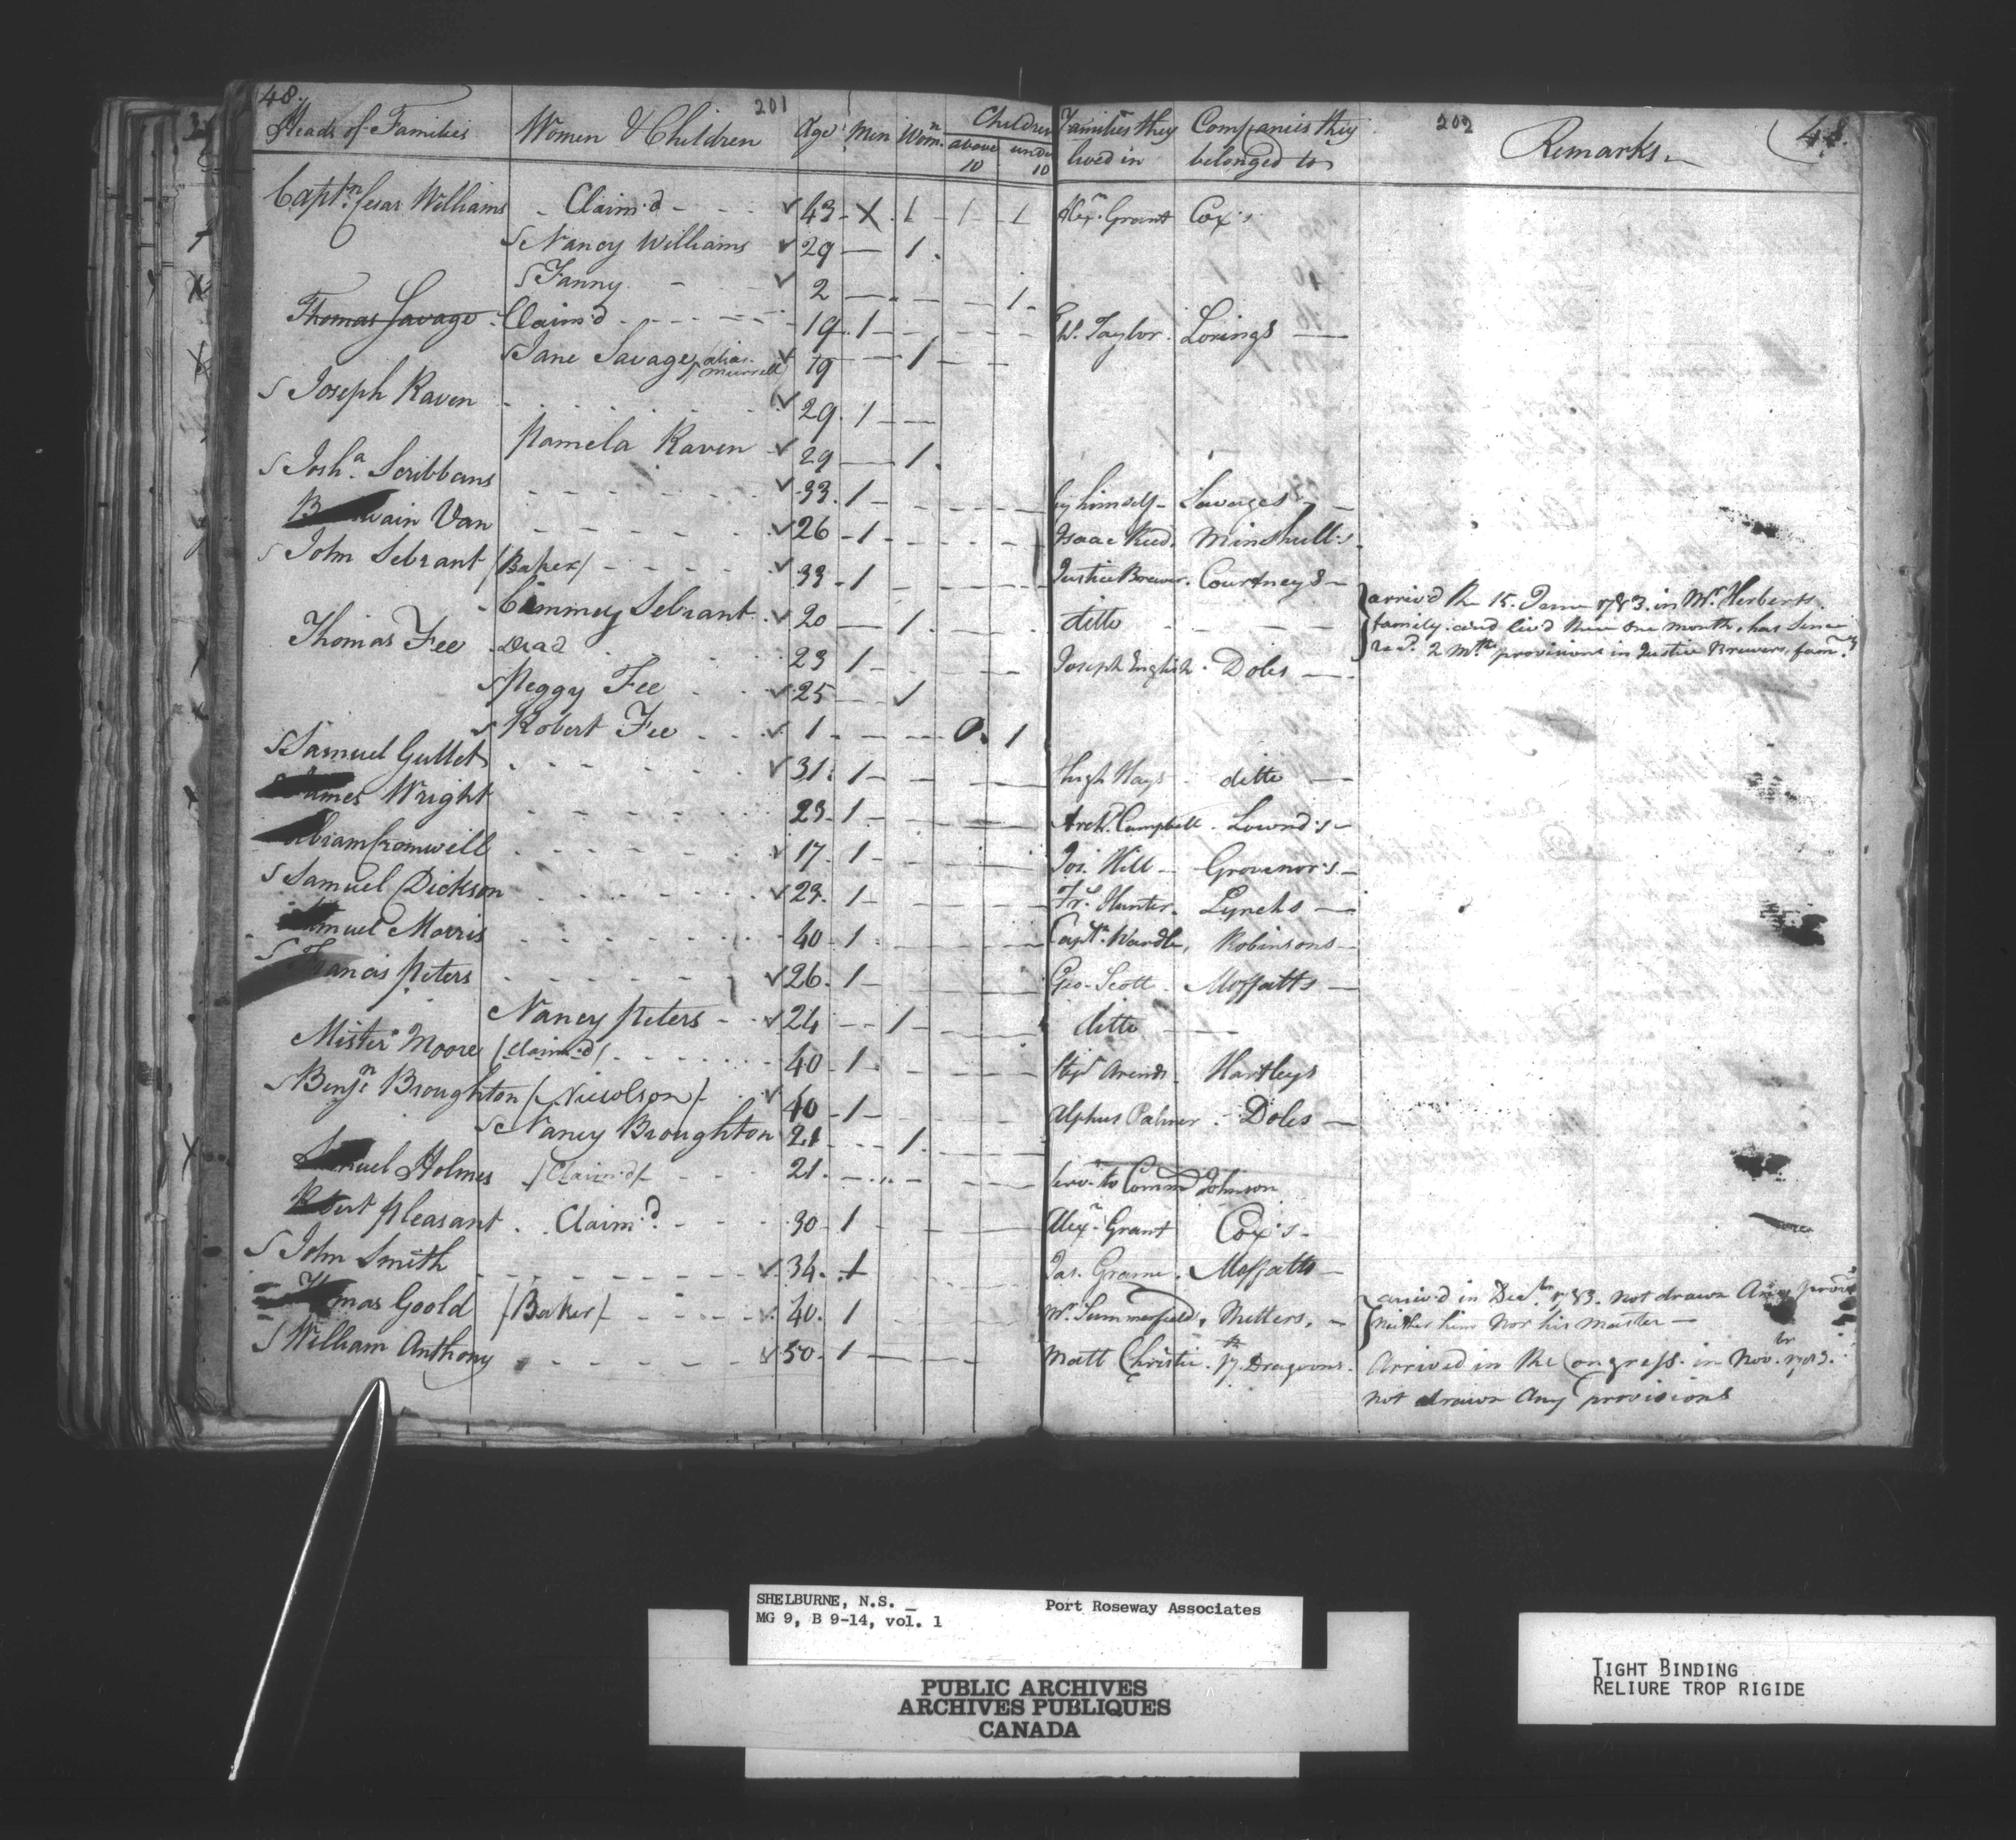 48. 201 202 48.
Heads of Families Women & Children Age Men Wom.n Children above 10 under 10 Families they lived in Companies they belonged to Remarks
Capt.n Cesar Williams - Claim'd - - - 43 - X . 1 - 1 - 1 Alex.r Grant Cox's
S Nancy Williams 29 — 1 .
S Fanny - - 2 — . — — 1 -
Thomas Savage . Claim'd - - - - 19 . 1 - W. Taylor . Lorings —
S Jane Savage / alias Murrell 19 — 1 —
S Joseph Raven 29 . 1 — —
Pamela Raven 29 — 1 .
S Josh.a Scribbans 33 . 1 - by himself - Savages -
wain Van 26 - 1 - Isaac Reed . Minshull's
S John Sebrant / Baker / - - - - 33 - 1 Justice Brewer . Courtneys -
Cimmey Sebrant 20 — 1 . ditto
arriv'd the 15. June 1783. in Mr. Herberts
family and liv'd there one month, has Since
rec.d 2 Mths provisions in Justice Brewers fam.y
Thomas Fee . Dead 23 1 - Joseph English . Doles —
S Peggy Fee 25 — 1
S Robert Fee 1 . — 0. 1
S Samuel Gullet 31 . 1 - Hugh Hays ditto —
James Wright 23 - 1 - Arch.d Campbell . Lownd's -
Abram Cromwell 17 . 1 - Jos. Hill - Grovenor's -
S Samuel Dickson 23 . 1 - Fr.s Hunter . Lynchs —
Samuel Morris 40 - 1 . Capt.n Wardle, Robinsons -
S Francis Peters 26 . 1 - Geo. Scott . Moffatts —
Nancy Peters - 24 — 1 - ditto —
Mister Moore / Claim'd / 40 . 1 . Arends - Hartleys
S Benj.n Broughton / Nicolson / . 40 - 1 - Alpheus Palmer . Doles —
S Nancy Broughton 21 . - - 1 .
Samuel Holmes / Claim'd / 21 . serv.t to Comm.d Johnson
Robert Pleasant . Claim'd . - - 30 - 1 Alex.r Grant Cox's -
S John Smith 34 . 1 Jas. Grame . Moffatts —
Thomas Goold / Baker / 40 . 1 Wm. Summerfield , Nutters, -
arriv'd in Dec.br 1783. not drawn Any provis.s
neither him nor his master —
S William Anthony 50 . 1 — Matt Christie . 17.th Dragoons .
Arrived in the Congress. in Nov.br 1783.
not drawn Any provisions
SHELBURNE, N.S. _ Port Roseway Associates
MG 9, B 9-14, vol. 1
PUBLIC ARCHIVES
ARCHIVES PUBLIQUES
CANADA
TIGHT BINDING
RELIURE TROP RIGIDE